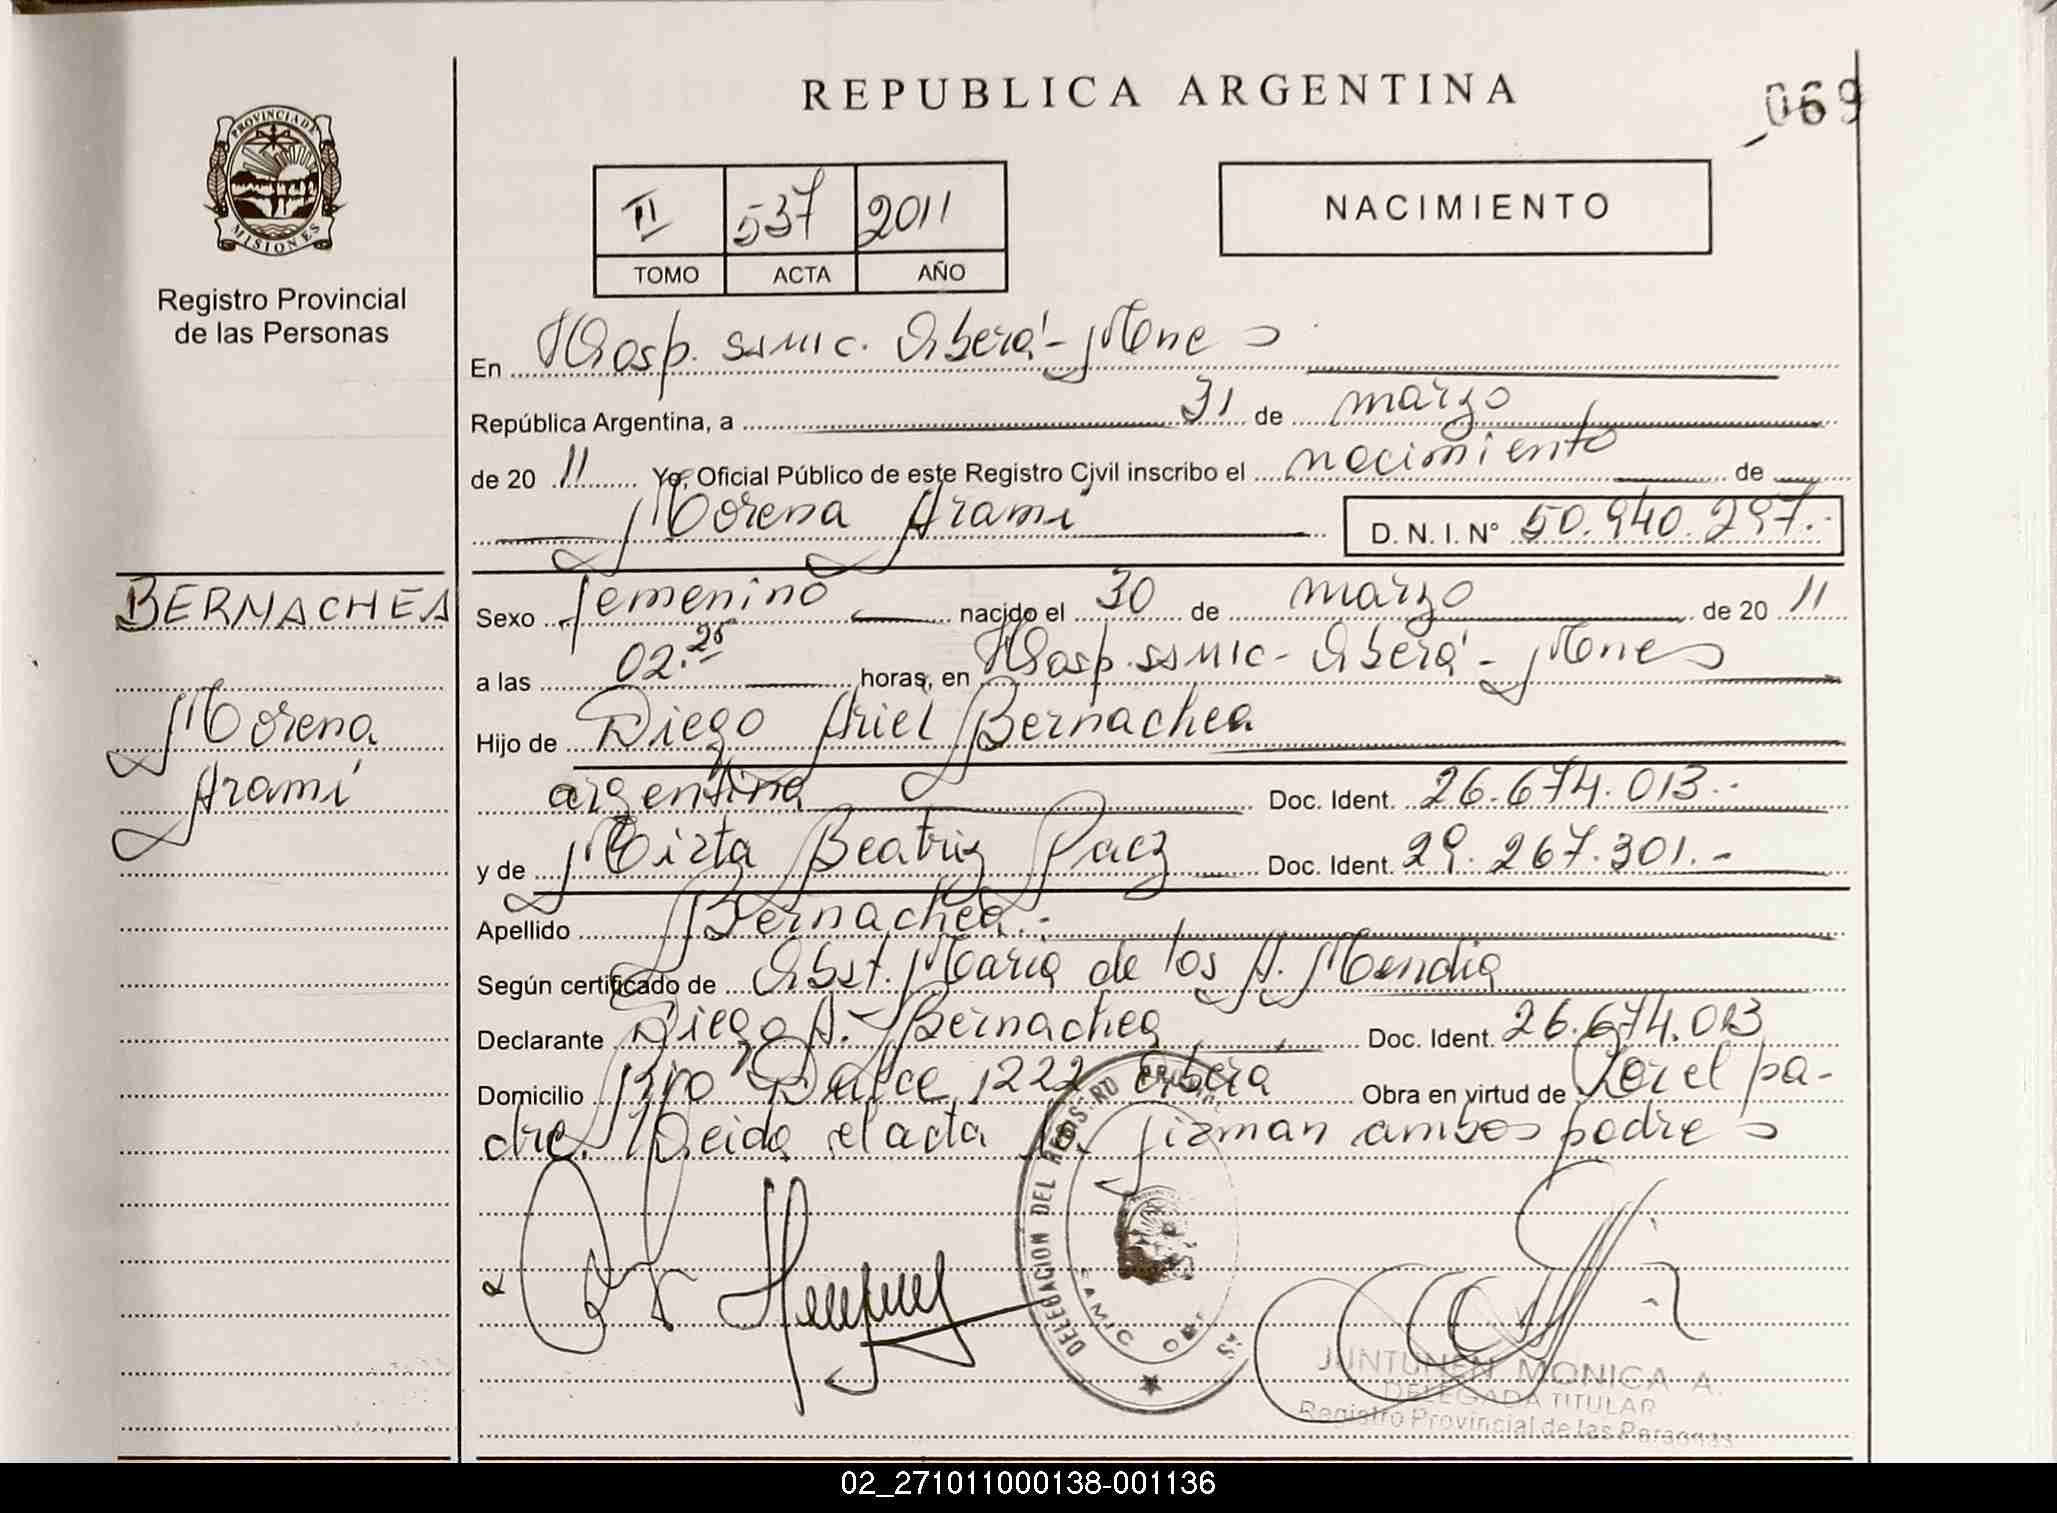 REPUBLICA ARGENTINA
069
PROVINCIA DE
MISIONES
Registro Provincial
de las Personas
II 537 2011
TOMO ACTA AÑO
NACIMIENTO
En Hosp. SAMIC. Oberá - Mnes
República Argentina, a 31 de marzo
de 20 11 Yo, Oficial Público de este Registro Civil inscribo el nacimiento de
Morena Aramí D. N. I. Nº 50.940.297.-
BERNACHEA
Morena
Aramí
Sexo femenino nacido el 30 de marzo de 20 11
a las 02.25 horas, en Hosp. SAMIC - Oberá - Mnes
Hijo de Diego Ariel Bernachea
argentina Doc. Ident. 26.674.013.-
y de Mirta Beatriz Paez Doc. Ident. 29.267.301.-
Apellido Bernachea.-
Según certificado de Obst. María de los A. Mendia
Declarante Diego A. Bernachea Doc. Ident. 26.674.013
Domicilio Bro Dalce 1222 Oberá Obra en virtud de Ser el pa-
dre. Leída el acta la firman ambos padres
DELEGACION DEL REGISTRO PROVINCIAL
SAMIC
JUNTUNEN MONICA A.
DELEGADA TITULAR
Registro Provincial de las Personas
02_271011000138-001136